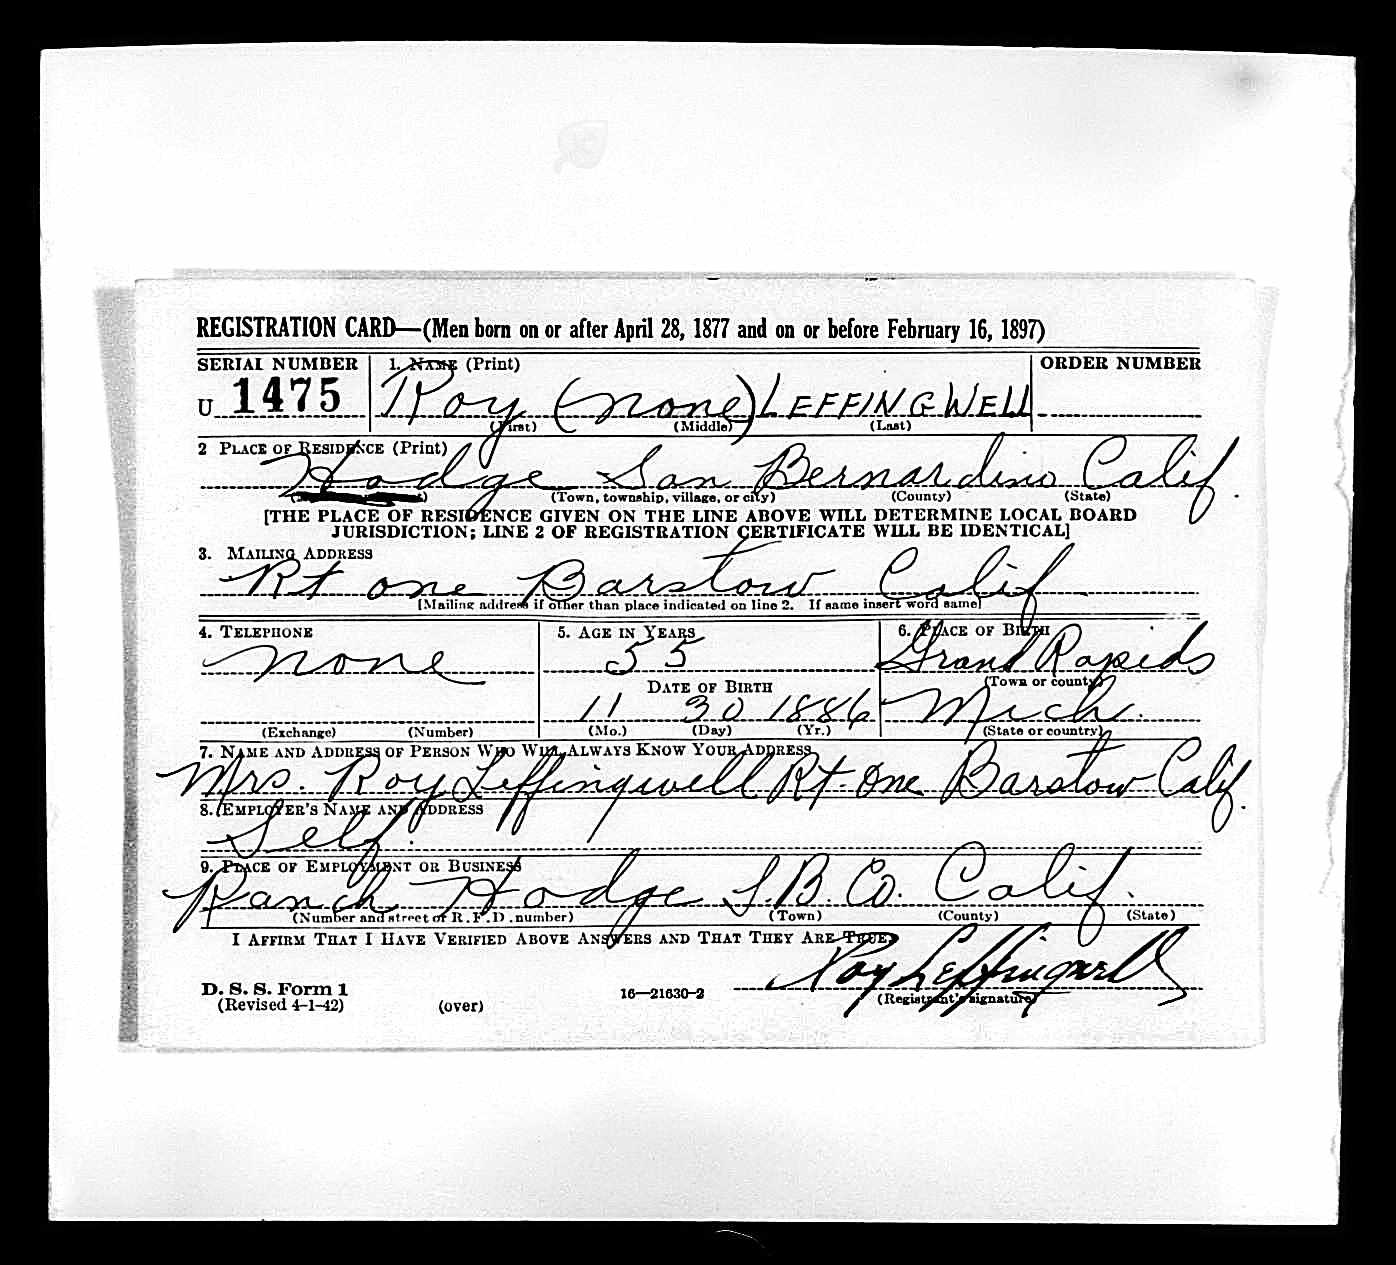 REGISTRATION CARD—(Men born on or after April 28, 1877 and on or before February 16, 1897)
SERIAL NUMBER 1. NAME (Print) ORDER NUMBER
U 1475 Roy (none) LEFFINGWELL
(First) (Middle) (Last)
2 PLACE OF RESIDENCE (Print)
Hodge San Bernardino Calif.
(Town, township, village, or city) (County) (State)
[THE PLACE OF RESIDENCE GIVEN ON THE LINE ABOVE WILL DETERMINE LOCAL BOARD
JURISDICTION; LINE 2 OF REGISTRATION CERTIFICATE WILL BE IDENTICAL]
3. MAILING ADDRESS
Rt one Barstow Calif
[Mailing address if other than place indicated on line 2. If same insert word same]
4. TELEPHONE 5. AGE IN YEARS 6. PLACE OF BIRTH
none 55 Grand Rapids
(Town or county)
DATE OF BIRTH
11 30 1886 Mich.
(Exchange) (Number) (Mo.) (Day) (Yr.) (State or country)
7. NAME AND ADDRESS OF PERSON WHO WILL ALWAYS KNOW YOUR ADDRESS
Mrs. Roy Leffingwell Rt. One Barstow Calif.
8. EMPLOYER'S NAME AND ADDRESS
Self.
9. PLACE OF EMPLOYMENT OR BUSINESS
Ranch Hodge S.B. Co. Calif.
(Number and street or R. F. D. number) (Town) (County) (State)
I AFFIRM THAT I HAVE VERIFIED ABOVE ANSWERS AND THAT THEY ARE TRUE.
Roy Leffingwell
D. S. S. Form 1
(Revised 4-1-42) (over) 16—21630-2 (Registrant's signature)